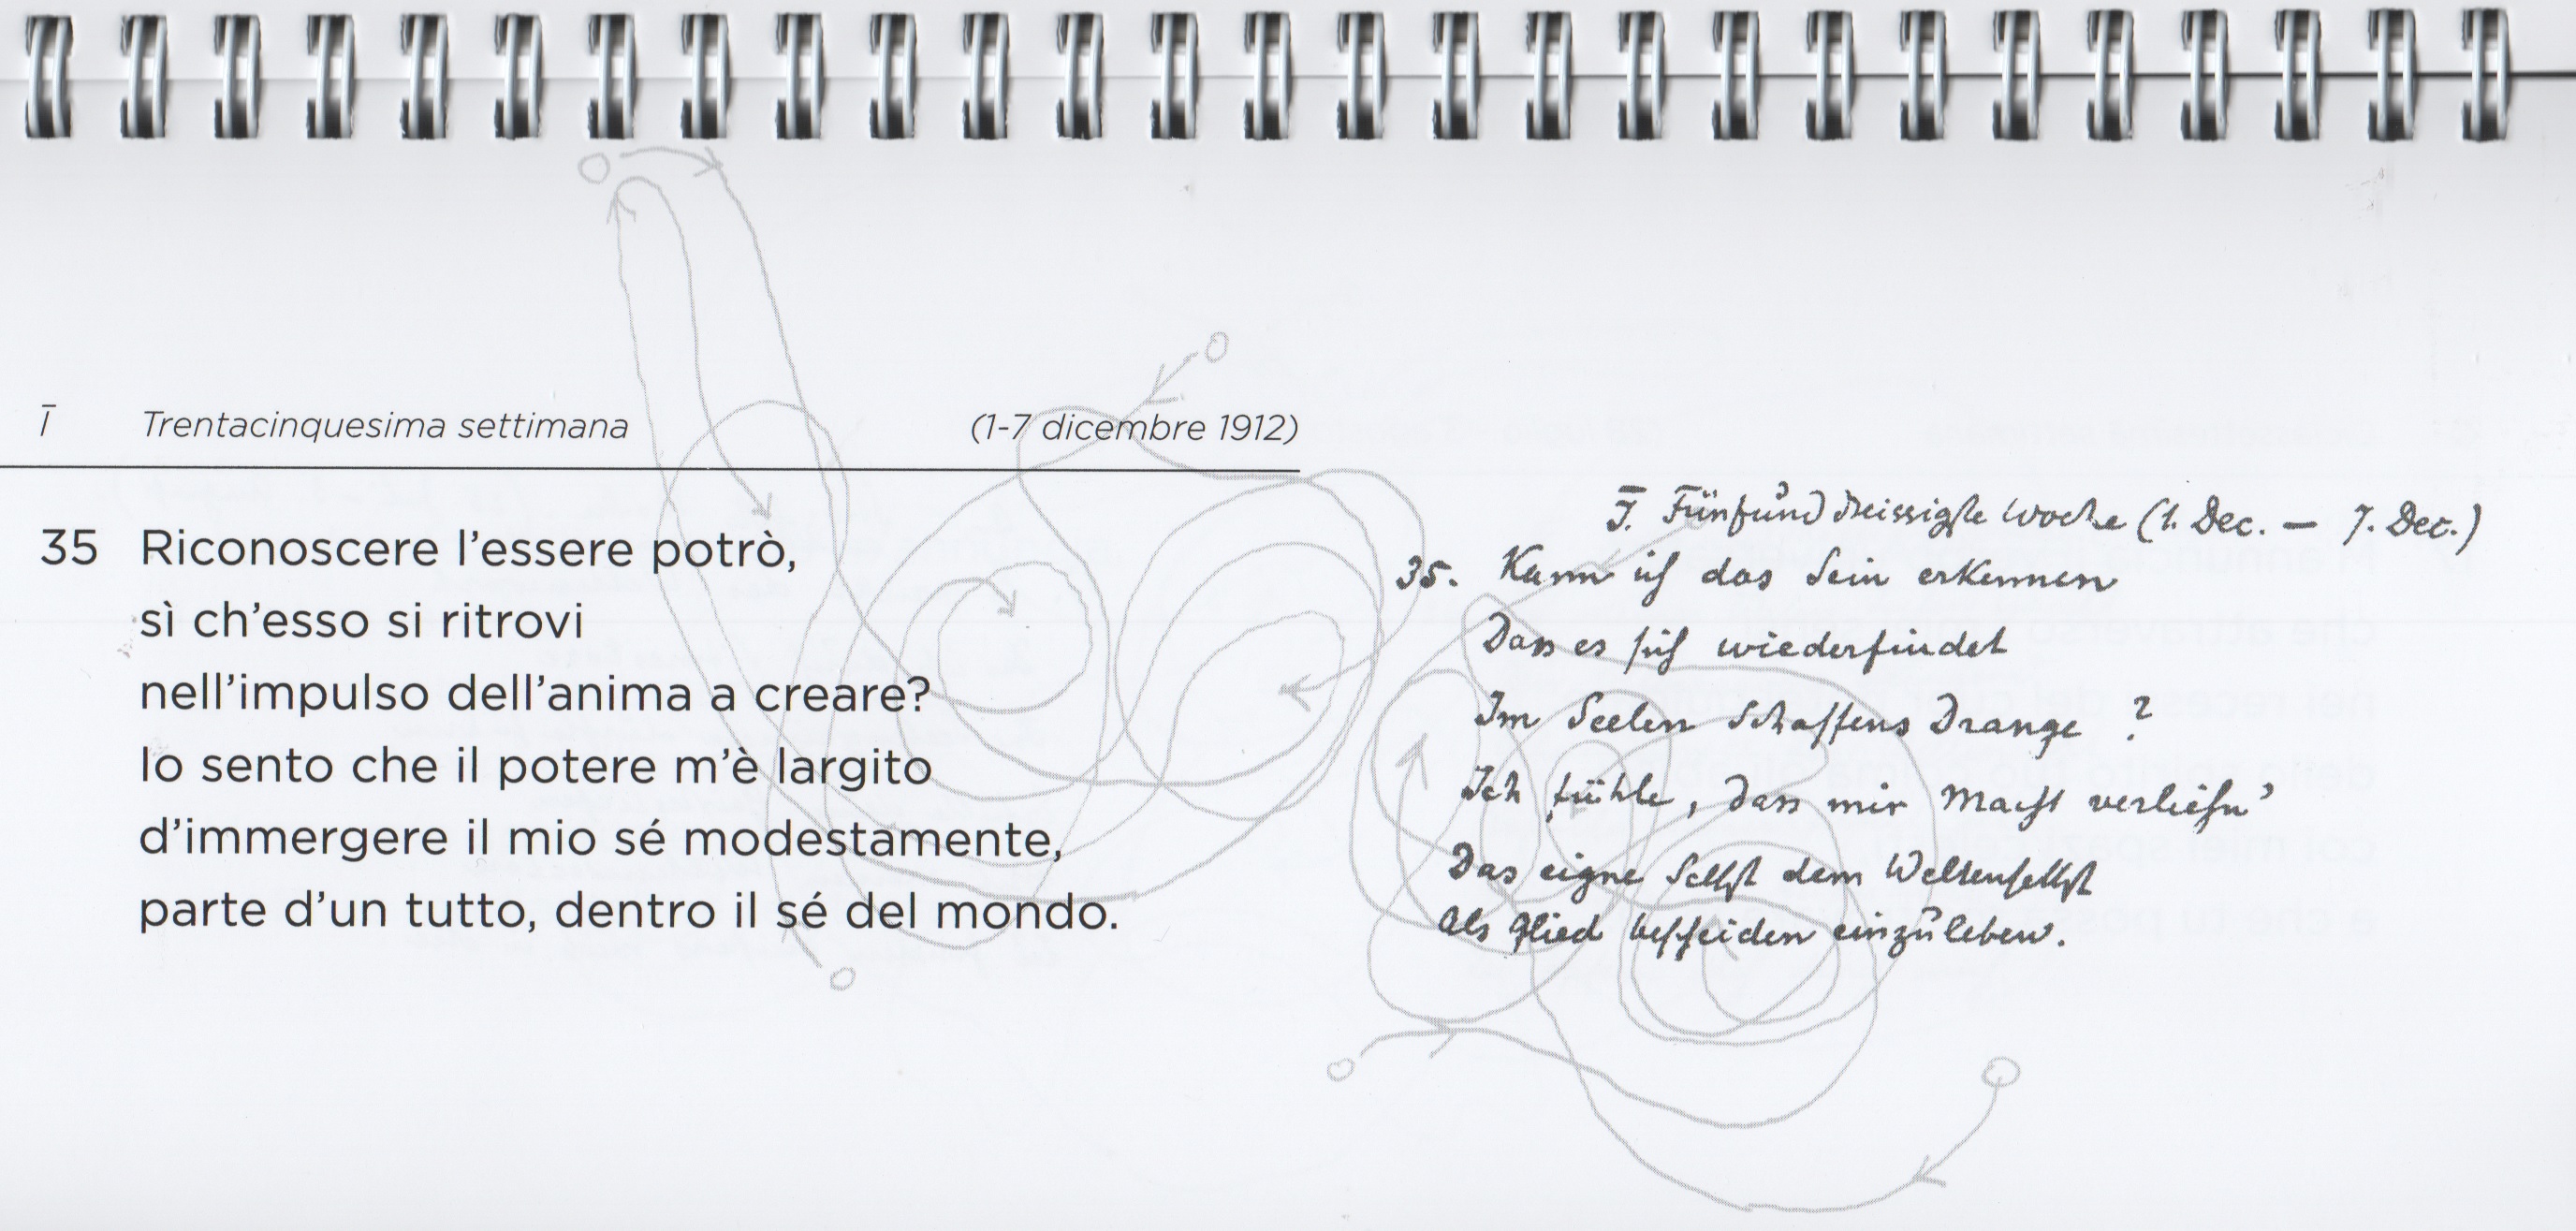 Ī Trentacinquesima settimana (1-7 dicembre 1912)
35 Riconoscere l'essere potrò,
sì ch'esso si ritrovi
nell'impulso dell'anima a creare?
Io sento che il potere m'è largito
d'immergere il mio sé modestamente,
parte d'un tutto, dentro il sé del mondo.
Ī. Fünfunddreissigste Woche (1. Dec. — 7. Dec.)
35. Kann ich das Sein erkennen
Dass es sich wiederfindet
Im Seelen Schaffens Drange ?
Ich fühle, dass mir Macht verlieh'n
Das eigne Selbst dem Weltenselbst
Als Glied bescheiden einzuleben.